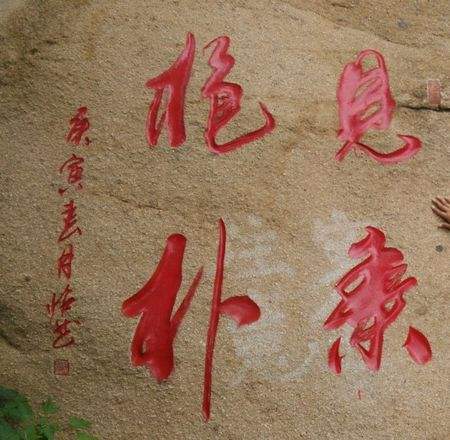 見素
抱朴
庚寅春月